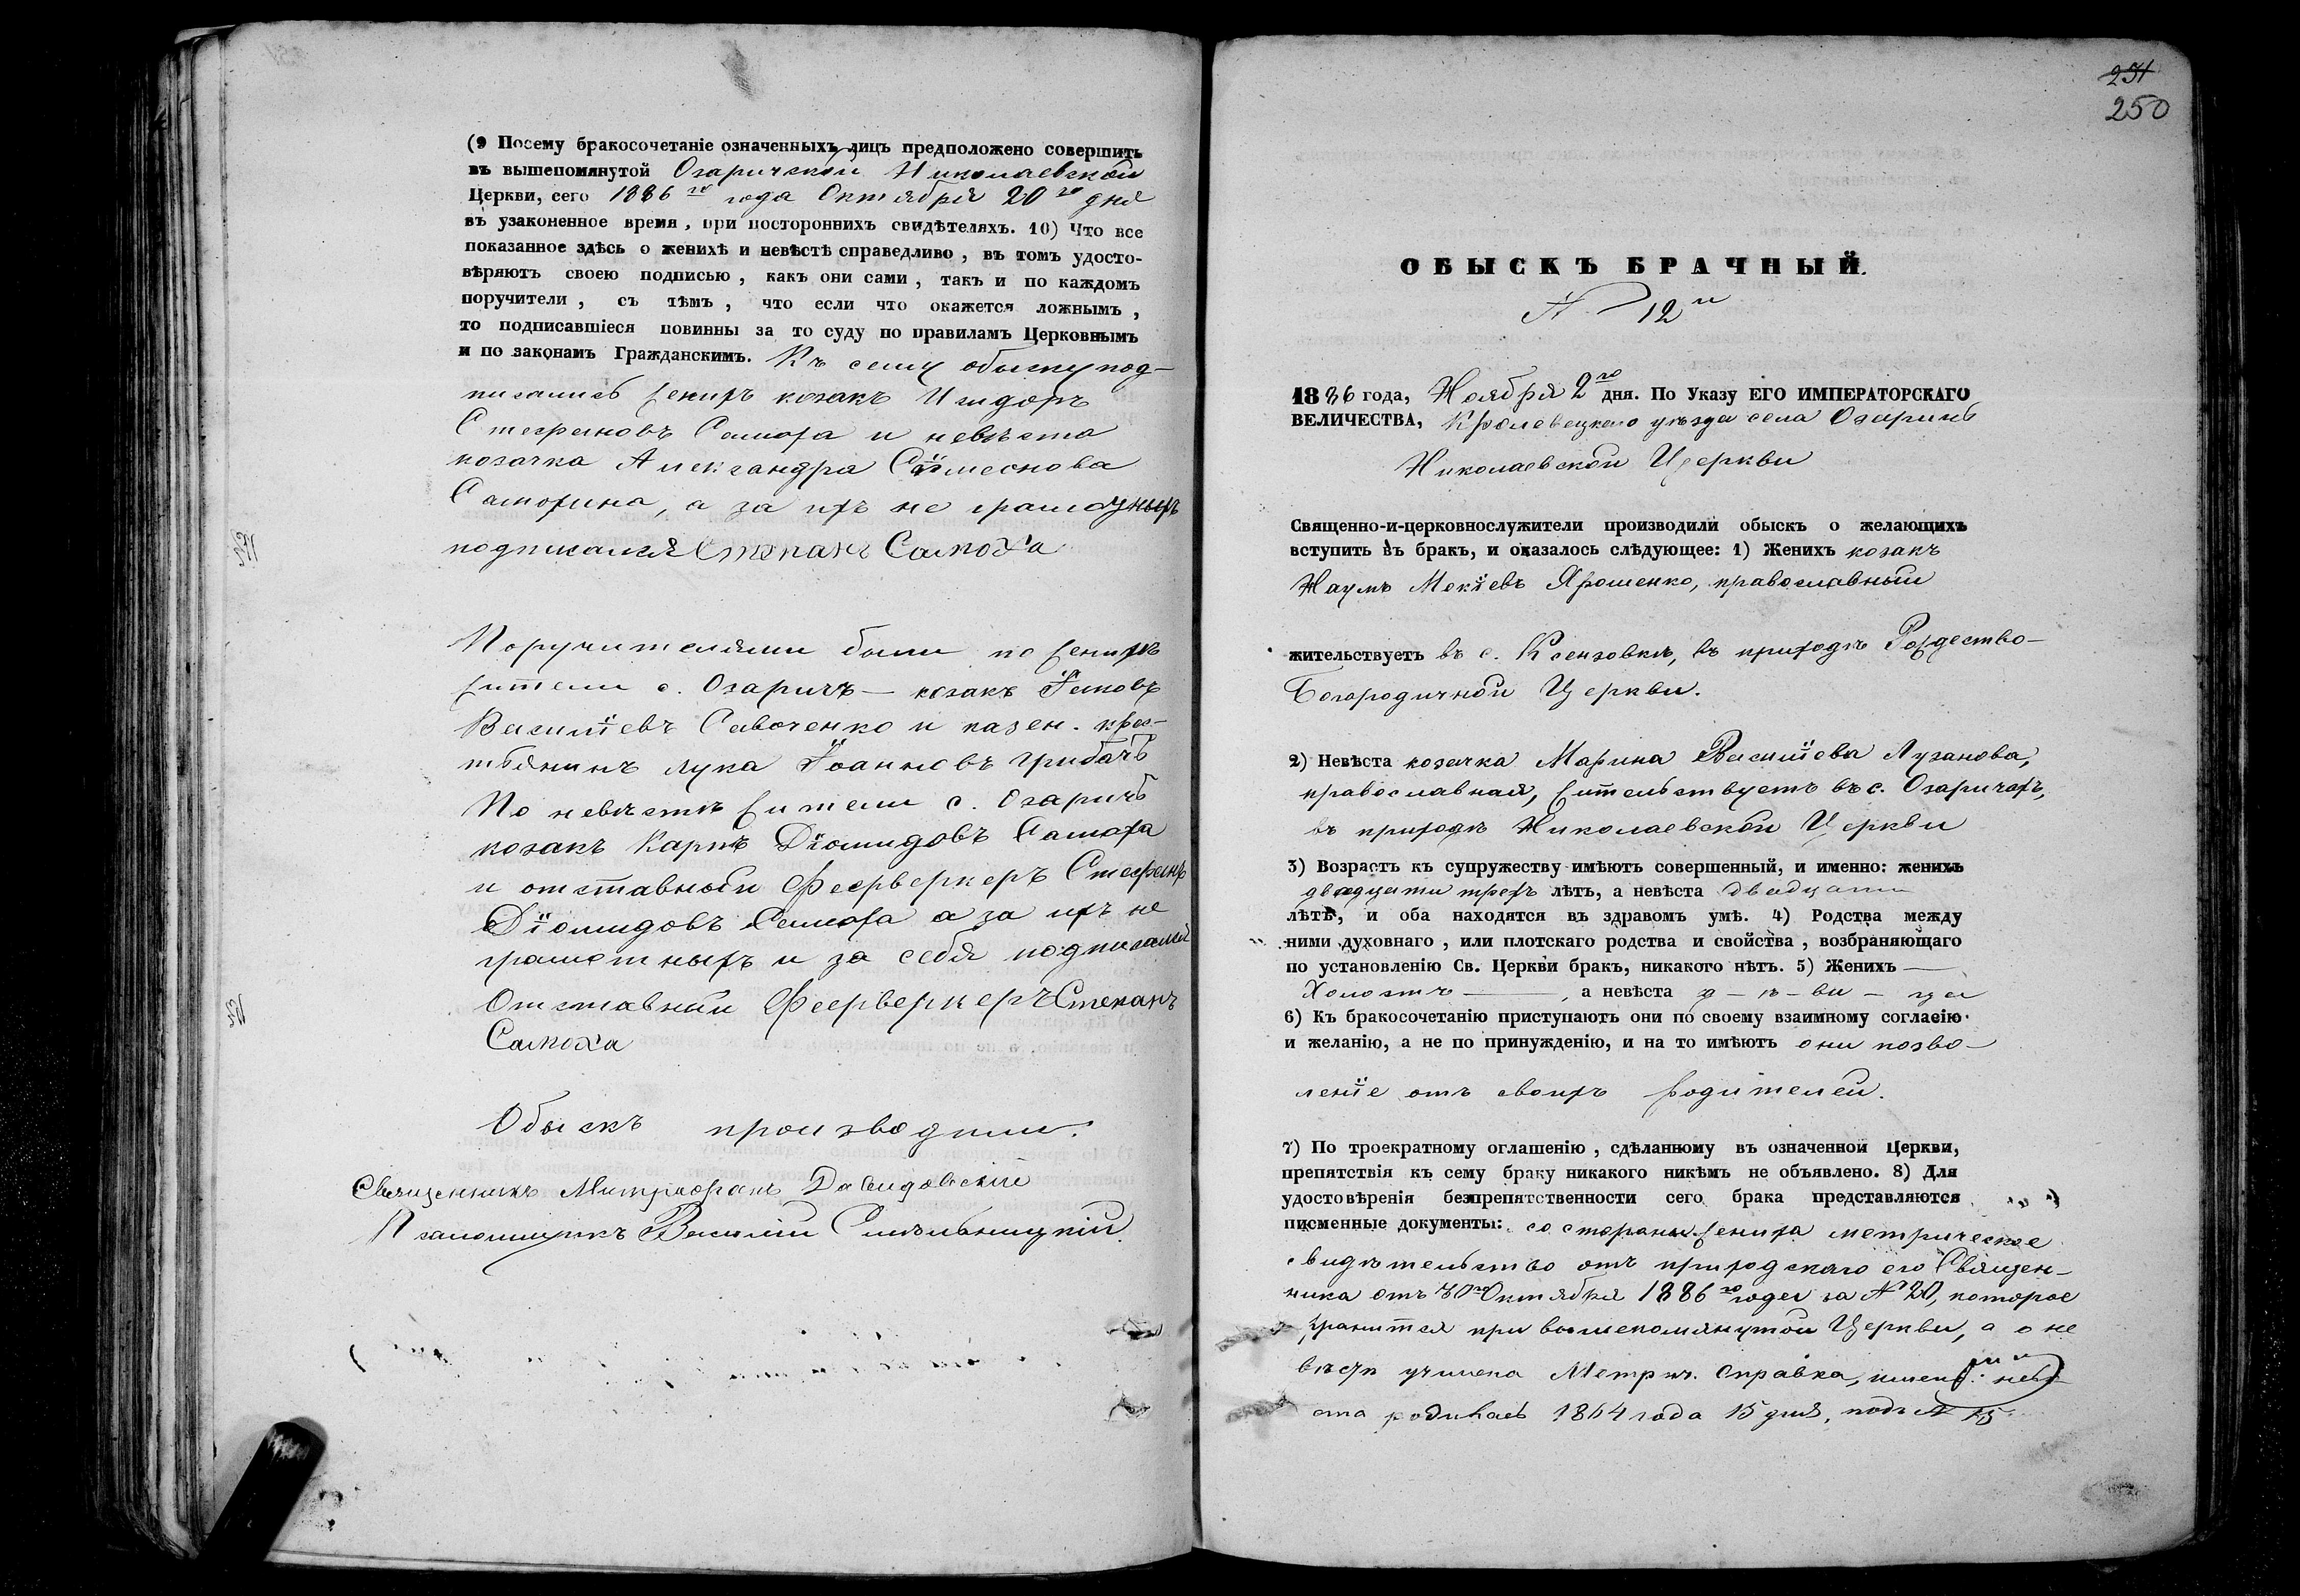 (9 Посему бракосочетаніе означенныхъ лицъ предположено совершить
въ вышепомянутой Озаричской Николаевской
Церкви, сего 1886 го года Октября 20 го дня
въ узаконенное время, при постороннихъ свидѣтеляхъ. 10) Что все
показанное здѣсь о женихѣ и невѣстѣ справедливо, въ томъ удосто-
вѣряютъ своею подписью, какъ они сами, такъ и по каждомъ
поручители, съ тѣмъ, что если что окажется ложнымъ,
то подписавшіеся повинны за то суду по правиламъ Церковнымъ
и по законамъ Гражданскимъ. Къ сему обыску под-
писались женихъ козакъ Исидоръ
Стефановъ Самоха и невѣста
козачка Александра
Самохина, а за ихъ не грамотныхъ
подписался Степанъ Самоха
Поручителями были по женихѣ
жители с. Озаричъ — козакъ Іаковъ
Василіевъ Савченко и казен. крес-
тьянинъ Лука Іоанновъ Грибачъ
По невѣстѣ жители с. Озаричъ
козакъ Карпъ Діомидовъ Самоха
и отставной Феерверкеръ Стефанъ
Діомидовъ Самоха а за ихъ не
грамотныхъ и за себя подписался
Отставный Феерверкеръ Степанъ
Самоха
Обыскъ производили:
Священникъ Митрофанъ Давидовскій
Псаломщикъ Василій Смѣльницкій
251
250
ОБЫСКЪ БРАЧНЫЙ.
№ 12 й
1886 года, Ноября 2 го дня. По Указу ЕГО ИМПЕРАТОРСКАГО
ВЕЛИЧЕСТВА, Кролевецкаго уѣзда села Озаричъ
Николаевской Церкви
Священно-и-церковнослужители производили обыскъ о желающихъ
вступить въ бракъ, и оказалось слѣдующее: 1) Женихъ козакъ
Наумъ Мокіевъ Ярошенко, православный
жительствуетъ въ с. Ксензовкѣ, въ приходѣ Рождество-
Богородичной Церкви.
2) Невѣста козачка Марина Василіева Лузанова,
православная, жительствуетъ въ с. Озаричахъ,
въ приходѣ Николаевской Церкви
3) Возрастъ къ супружеству имѣютъ совершенный, и именно: женихъ
двадцати трехъ лѣтъ, а невѣста двадцати
лѣтъ, и оба находятся въ здравомъ умѣ. 4) Родства между
ними духовнаго, или плотскаго родства и свойства, возбраняющаго
по установленію Св. Церкви бракъ, никакого нѣтъ. 5) Женихъ —
Холостъ —, а невѣста д — ѣ — ви — ца
6) Къ бракосочетанію приступаютъ они по своему взаимному согласію
и желанію, а не по принужденію, и на то имѣютъ они позво-
леніе отъ своихъ родителей.
7) По троекратному оглашенію, сдѣланному въ означенной Церкви,
препятствія къ сему браку никакого никѣмъ не объявлено. 8) Для
удостовѣренія безпрепятственности сего брака представляются
писменные документы: со стороны жениха метрическое
свидѣтельство отъ приходскаго его Священ-
ника отъ 30 го Октября 1886 го года за № 20, которое
хранится при вышепомянутой Церкви, а о не
вѣстѣ учинена Метрич. справка, невѣ-
ста родилась 1864 года 15 дня, подъ № 15